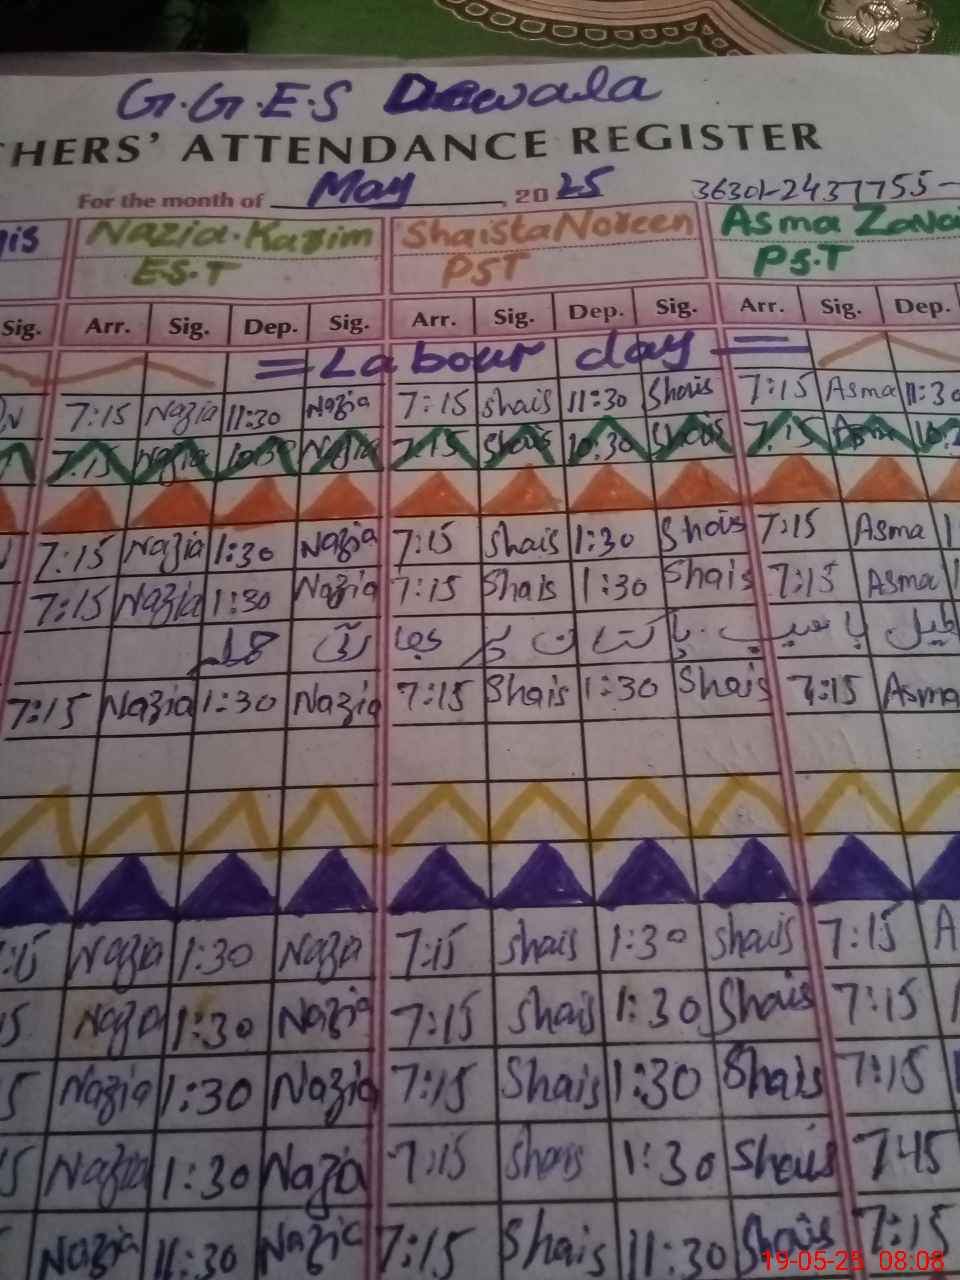 G.G.E.S Dewala
HERS' ATTENDANCE REGISTER
For the month of May, 2025 36301-2437755-
gis Nazia.Kazim Shaista Noreen Asma Za
E.S.T PST PS.T
Sig. Arr. Sig. Dep. Sig. Arr. Sig. Dep. Sig. Arr. Sig. Dep.
= Labour day =
7:15 Nazia 11:30 Nazia 7:15 Shais 11:30 Shais 7:15 Asma 11:30
7:15 Nazia 10:30 Nazia 7:15 Shais 10:30 Shais 7:15 Asma 10:3
7:15 Nazia 1:30 Nazia 7:15 Shais 1:30 Shais 7:15 Asma 1
7:15 Nazia 1:30 Nazia 7:15 Shais 1:30 Shais 7:15 Asma 1
پاکستان پر
7:15 Nazia 1:30 Nazia 7:15 Shais 1:30 Shais 7:15 Asma
:15 Nazia 1:30 Nazia 7:15 Shais 1:30 Shais 7:15 A
15 Nazia 1:30 Nazia 7:15 Shais 1:30 Shais 7:15
5 Nazia 1:30 Nazia 7:15 Shais 1:30 Shais 7:15
5 Nazia 1:30 Nazia 7:15 Shais 1:30 Shais 7:45
Nazia 11:30 Nazia 7:15 Shais 11:30 Shais 7:15
19-05-25 08:08